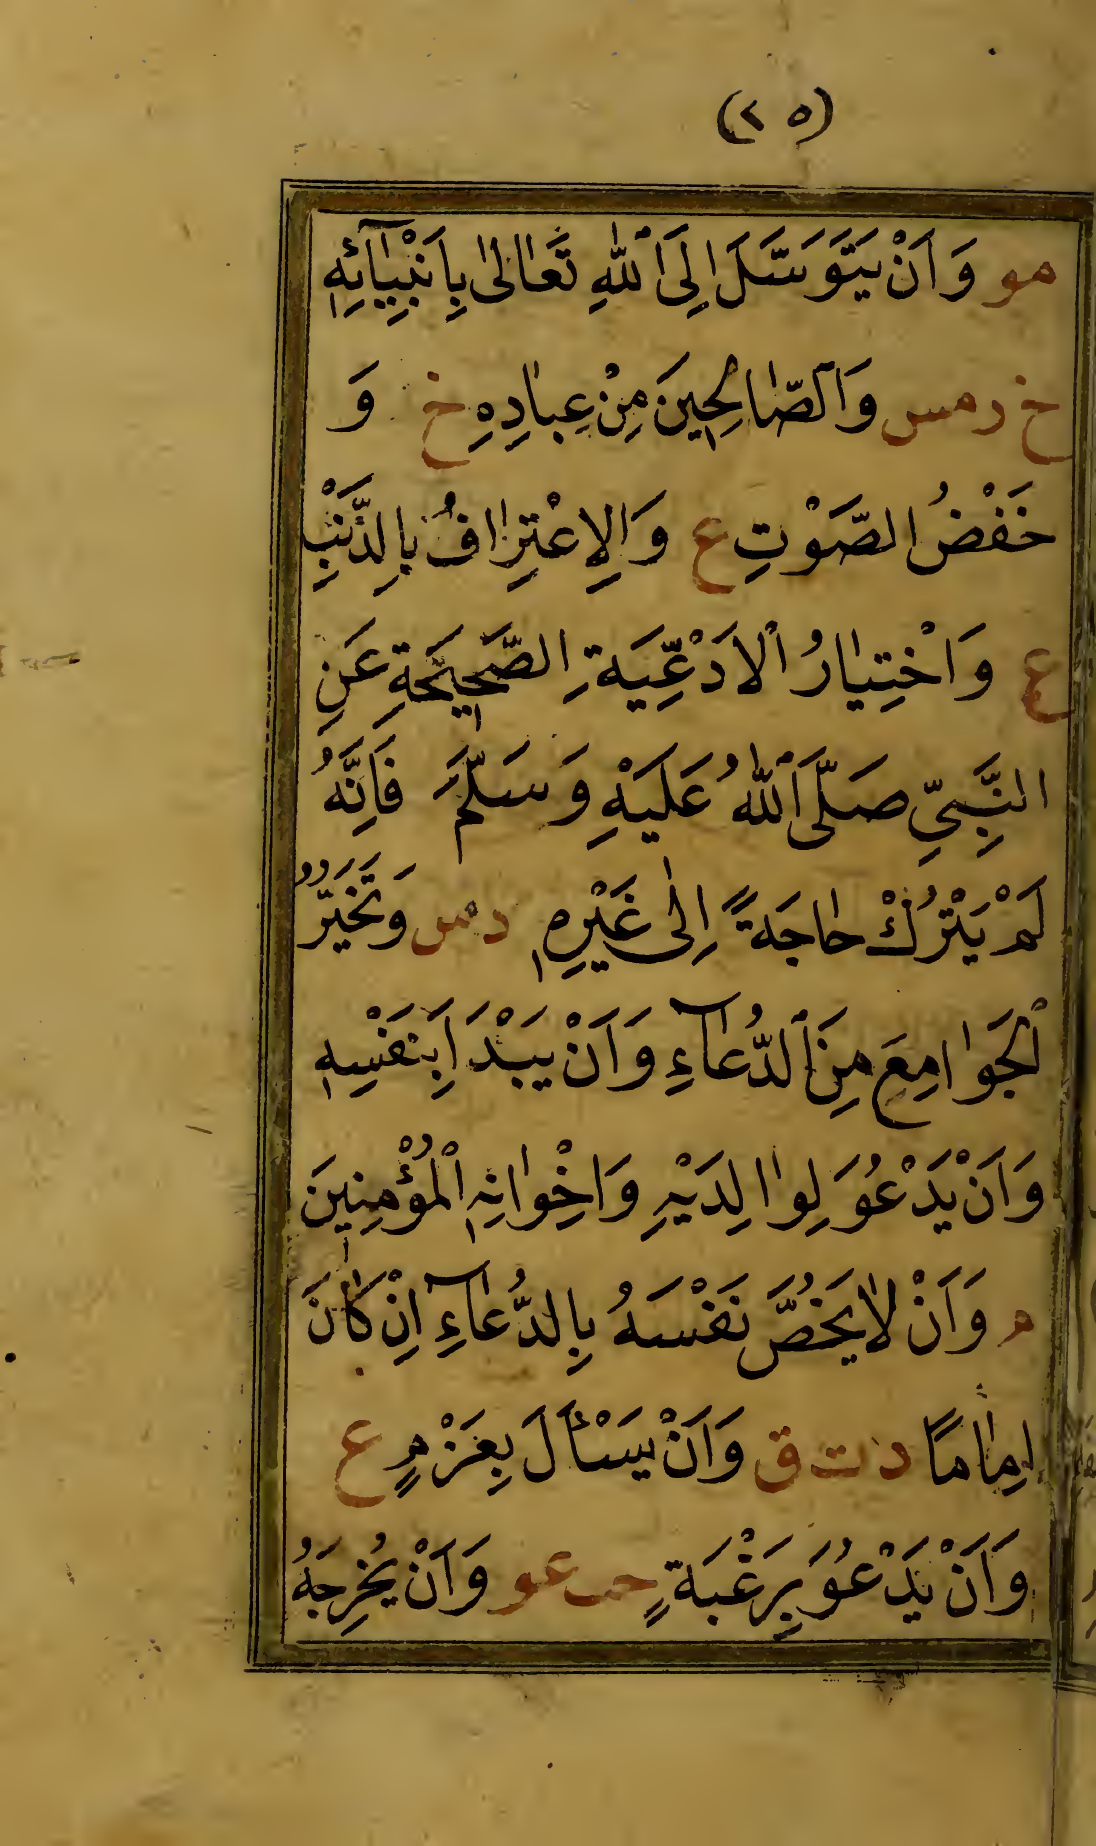 (٢٥)
مو وَاَنْ يَتَوَسَّلَ اِلَى ٱللّٰهِ تَعَالٰى بِاَنْبِيَآئِهٖ
خ ر مس وَالصَّالِحِينَ مِنْ عِبَادِهِ خ وَ
خَفْضُ الصَّوْتِ ع وَالِاعْتِرَافُ بِالذَّنْبِ
ع وَاخْتِيَارُ الْاَدْعِيَةِ الصَّحِيحَةِ عَنِ
النَّبِيِّ صَلَّى ٱللّٰهُ عَلَيْهِ وَسَلَّمَ فَاِنَّهُ
لَمْ يَتْرُكْ حَاجَةً اِلٰى غَيْرِهٖ د س وَتَخَيُّرُ
الْجَوَامِعَ مِنَ ٱلدُّعَآءِ وَاَنْ يَبْدَاَ بِنَفْسِهٖ
وَاَنْ يَدْعُوَ لِوَالِدَيْهِ وَاِخْوَانِهِ ٱلْمُؤْمِنِينَ
م وَاَنْ لَا يَخُصَّ نَفْسَهُ بِالدُّعَآءِ اِنْ كَانَ
اِمَامًا د ت ق وَاَنْ يَسْأَلَ بِعَزْمٍ ع
وَاَنْ يَدْعُوَ بِرَغْبَةٍ حب عو وَاَنْ يُخْرِجَهُ